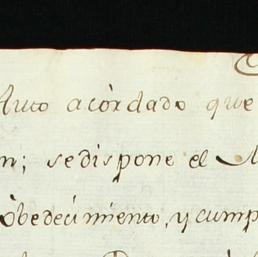 Auto acòrdado que
n; se dispone el
òbedecimiento, y cump